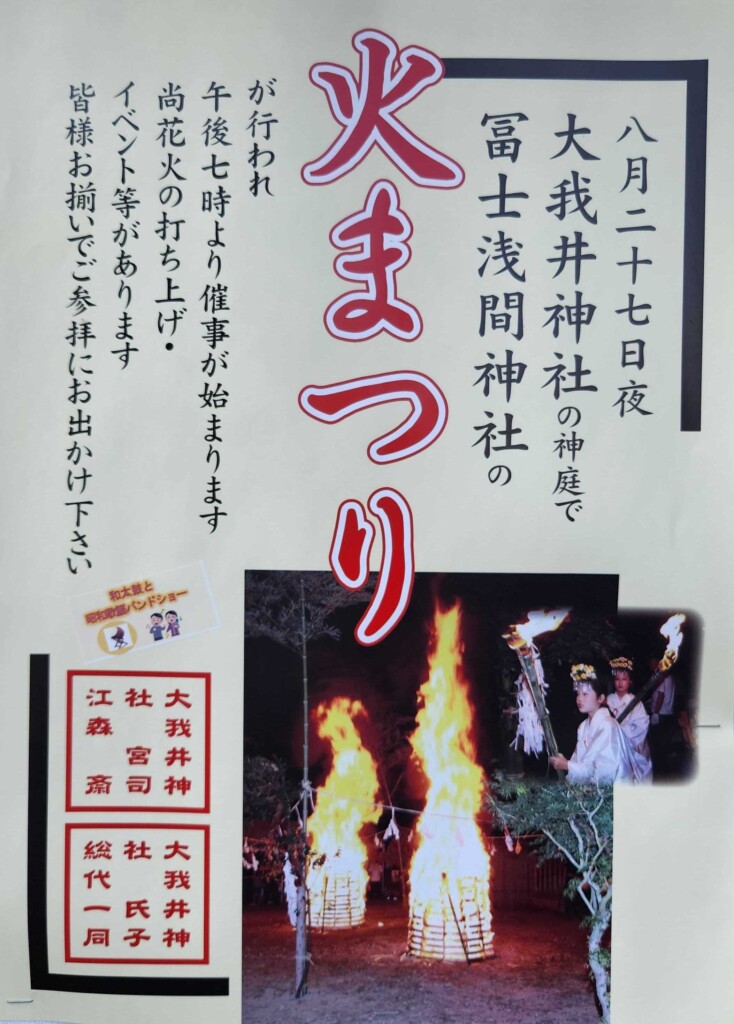 八月二十七日夜
大我井神社の神庭で
冨士浅間神社の
火まつり
が行われ
午後七時より催事が始まります
尚花火の打ち上げ・
イベント等があります
皆様お揃いでご参拝にお出かけ下さい
和太鼓と
昭和歌謡バンドショー
大我井神
社 宮司
江森 斎
大我井神
社 氏子
総代一同